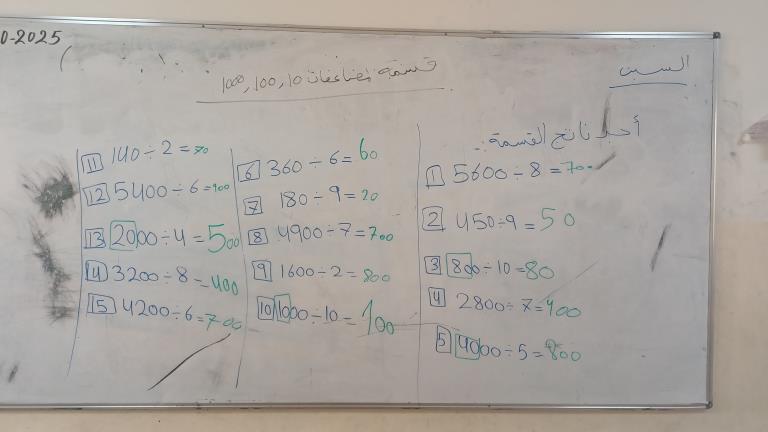 0-2025
السبت
قسمة مضاعفات 10, 100, 1000
أجد ناتج القسمة:
1 5600 ÷ 8 = 700
2 450 ÷ 9 = 50
3 800 ÷ 10 = 80
4 2800 ÷ 7 = 400
5 4000 ÷ 5 = 800
6 360 ÷ 6 = 60
7 180 ÷ 9 = 20
8 4900 ÷ 7 = 700
9 1600 ÷ 2 = 800
10 1000 ÷ 10 = 100
11 140 ÷ 2 = 70
12 5400 ÷ 6 = 900
13 2000 ÷ 4 = 500
14 3200 ÷ 8 = 400
15 4200 ÷ 6 = 700